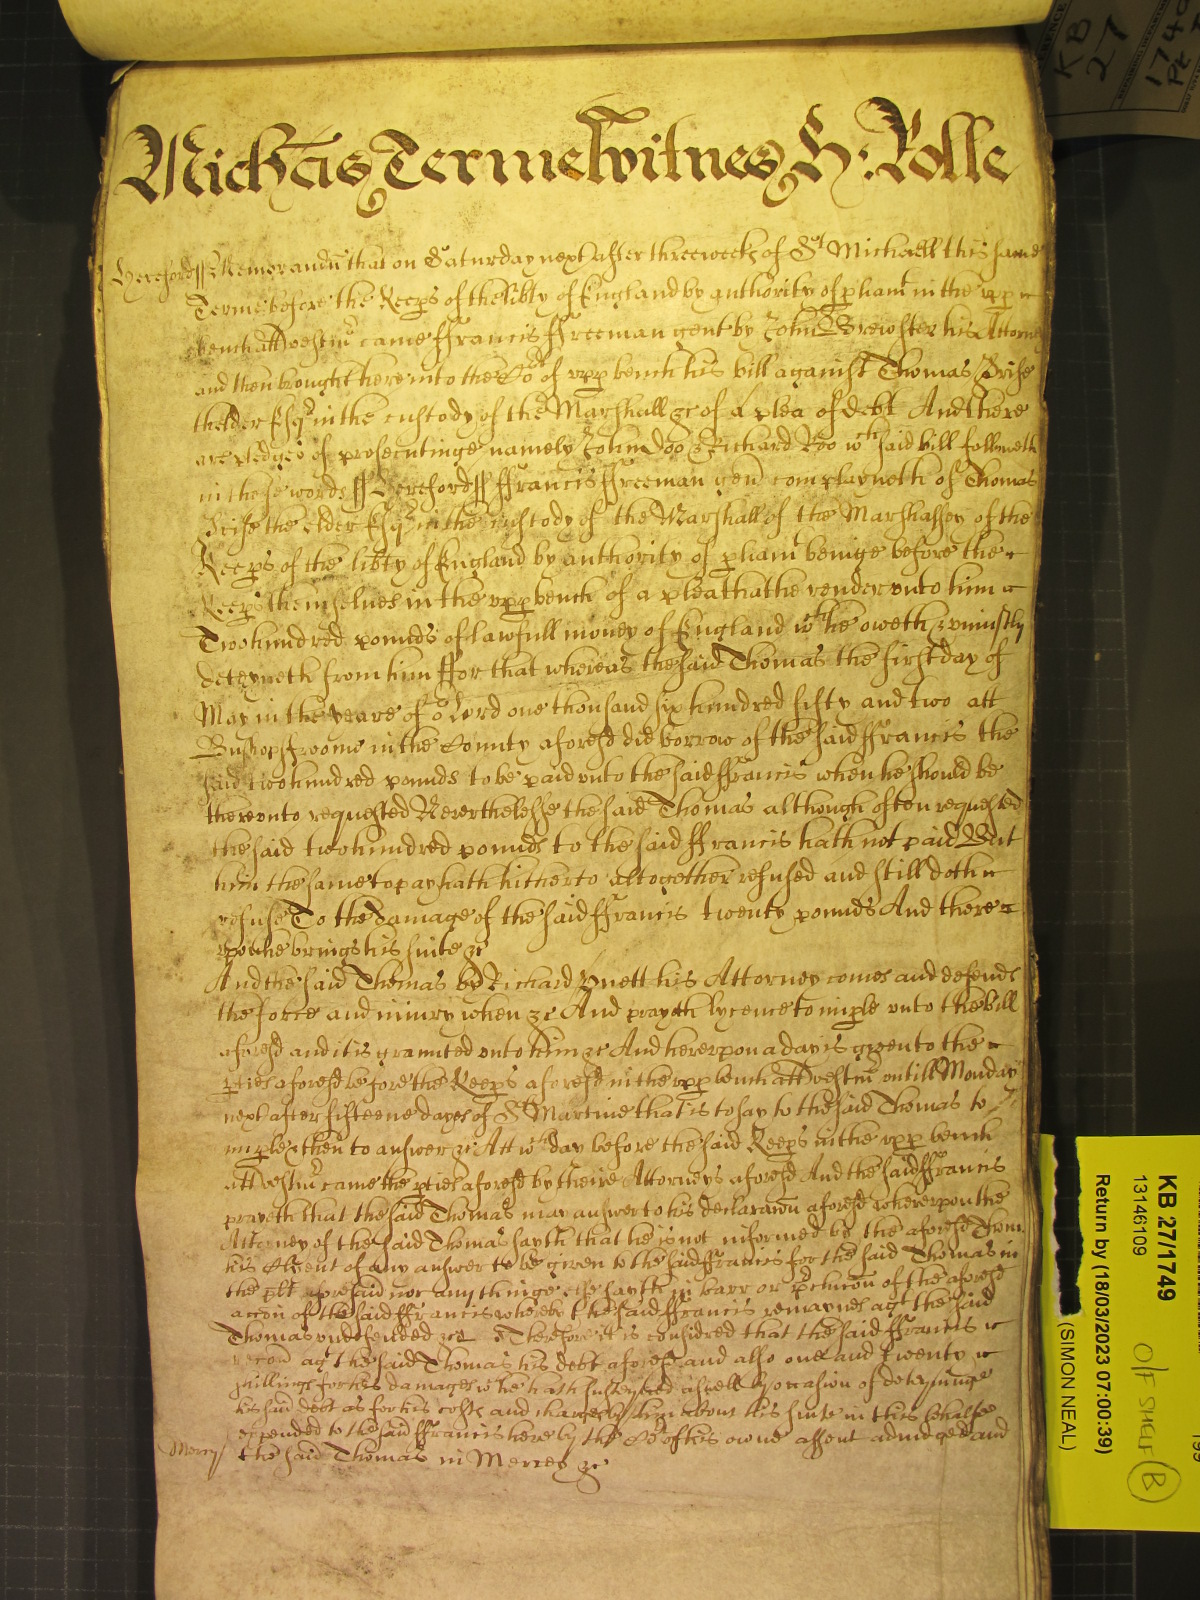 Micħis Terme Witnes H: Rolle
Hereford ss Memorandū that on Saturday next after three weekes of St Michaell this same
Terme before the Keeps of the libty of England by authority of pliamt in the vpp
bench att westmr came ffrancis ffreeman gent by John Brewster his Attorney
and then brought here into the Cort of vpp bench his bill against Thomas Brise
thelder Esqr in the custody of the Marshall &c of a plea of debt And there
are pledges of prosecutinge namely John Doo & Richard Roo wch said bill followeth
in these words ss Hereford ss ffrancis ffreeman gen complayneth of Thomas
Brise the elder Esqr in the custody of the Marshall of the Marshalsey of the
Keeps of the libty of England by authority of pliamt beinge before the
Keeps themselues in the vpp bench of a plea that he render vnto him
Two hundred pounds of lawfull money of England wch he oweth & vniustly
deteyneth from him ffor that whereas the said Thomas the first day of
May in the yeare of or Lord one thousand six hundred fifty and two att
Bushopsfroome in the County aforesd did borrow of the said ffrancis the
said two hundred pounds to be paid vnto the said ffrancis when he should be
therevnto requested Neverthelesse the said Thomas although often requested
the said two hundred pounds to the said ffrancis hath not paid But
him the same to pay hath hitherto altogether refused and still doth
refuse To the damage of the said ffrancis twenty pounds And there
vpon he brings his suite &c
And the said Thomas by Richard his Attorney comes and defends
the force and iniury when &c And prayeth lycence to imple vnto the bill
aforesd and it is graunted vnto him &c And herevpon a day is given to the
pties aforesd before the Keeps aforesd in the vpp bench att westmr vntill Monday
next after fifteene dayes of St Martine that is to say to the said Thomas to
imple & then to answer &c Att wch day before the said Keeps in the vpp bench
att westmr came the pties aforesd by theire Attorneys aforesd And the said ffrancis
prayeth that the said Thomas may answer to his declaracon aforesd wherevpon the
Attorney of the said Thomas sayth that he is not informed by the aforesd Thom
his Clyent of any answer to be given to the said ffrancis for the said Thomas in
the plt aforesaid nor any thinge else sayth in barr or of the aforesd
accon of the said ffrancis whereby the said ffrancis remaynes agt the said
Thomas vndefended &c Therefore it is considred that the said ffrancis
recou agt the said Thomas his debt aforesd and also one and twenty
shillings for his damages wch he hath susteyned aswell by occasion of deteyninge
his said debt as for his costs and charges by him about his suite in this behalfe
expended to the said ffrancis here by the Cort of his owne assent adiudged and
Mercy the said Thomas in Mercey &c
KB 27
174
KB 27/1749
13146109
Return by (18/03/2023 07:00:39)
(SIMON NEAL)
O/F SHELF B